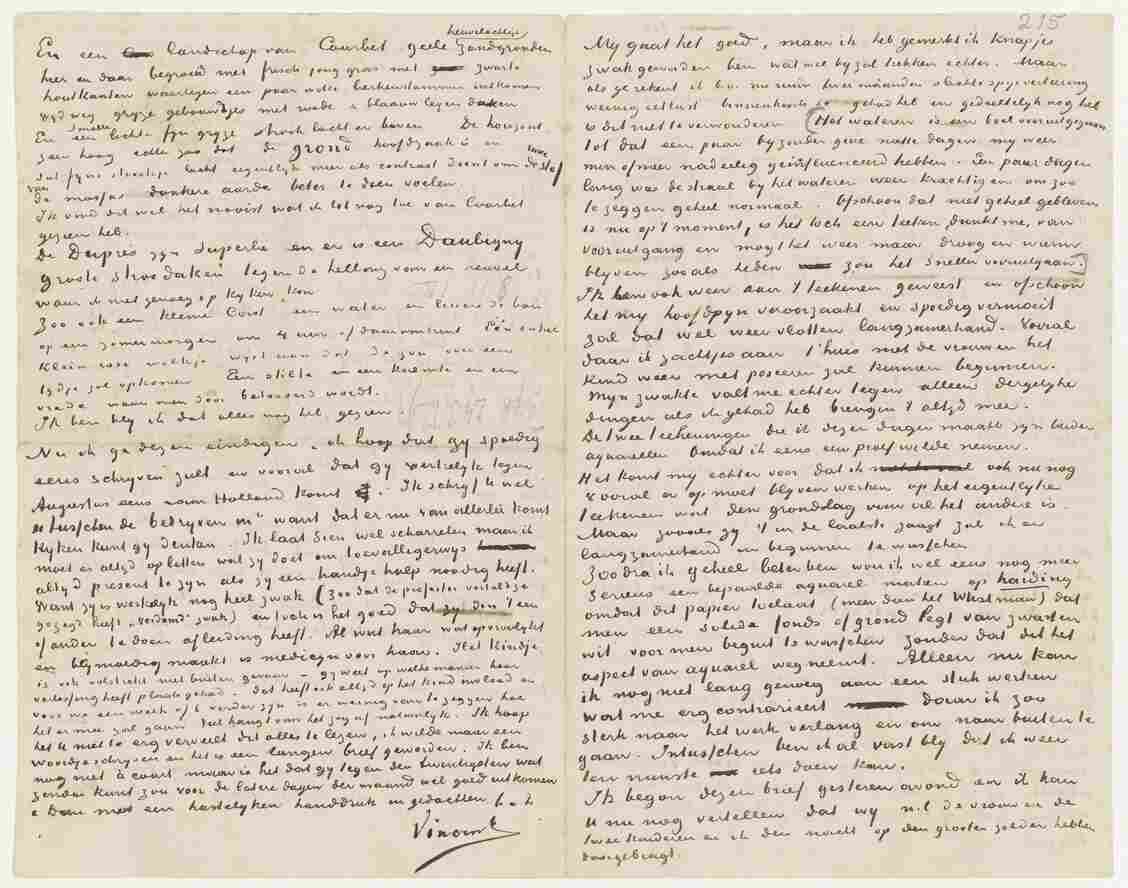 215
heuvelachtige
En een landschap van Courbet. geele zandgronden
hier en daar begroeid met frisch jong gras met zwarte
houtkanten waartegen een paar witte berkenstammen uitkomen
in 't verschiet grijze gebouwtjes met roode & blaauw leien daken
En een smalle lichte fijn grijze strook lucht er boven. De horizont
zeer hoog echter zoo dat de grond hoofdzaak is en
dat fijne strookje lucht eigenlijk meer als contrast dient om de ruwe stof
van de massas donkere aarde beter te doen voelen.
Ik vind dit wel het mooist wat ik tot nog toe van Courbet
gezien heb.
De Duprés zijn superbe en er is een Daubigny
groote stroodaken tegen de helling van een heuvel
waar ik niet genoeg op kijken kon.
Zoo ook een kleine Corot. een water en lisière de bois
op een zomermorgen om 4 uur of daaromtrent. Één enkel
klein rose wolkje wijst aan dat de zon over een
tijdje zal opkomen. Een stilte en een kalmte en een
vrede waar men door betooverd wordt.
Ik ben blij ik dat alles nog heb gezien.
Nu ik ga dezen eindigen, ik hoop dat gij spoedig
eens schrijven zult en vooral dat gij werkelijk tegen
Augustus eens naar Holland komt. Ik schrijf U wel
"tusschen de bedrijven in" want dat er nu van allerlei komt
kijken kunt gij denken. Ik laat Sien wel scharrelen maar ik
moet er altijd op letten wat zij doet om toevalligerwijs
altijd present te zijn als zij een handje hulp noodig heeft.
Want zij is werkelijk nog heel zwak (zoo dat de professor verleden
gezegd heeft "verdomd zwak) en toch is het goed dat zij door 't een
of ander te doen afleiding heeft. Al wat haar wat opvrolijkt
en blijmoedig maakt is medicijn voor haar. Het kindje
is ook volstrekt niet buiten gevaar – gij weet op welke manier haar
verlossing heeft plaats gehad. Dat heeft ook altijd op het kind invloed en
voor we een week of 6 verder zijn is er weinig van te zeggen hoe
het er mee zal gaan. Dat hangt van het zog af natuurlijk. Ik hoop
het U niet te erg verveelt dit alles te lezen, ik wilde maar een
woordje schrijven en het is een langen brief geworden. Ik ben
nog niet à court maar is het dat gij tegen den twintigsten wat
zenden kunt zou voor de latere dagen der maand wel goed uitkomen
Dam met een hartelijken handdruk in gedachten. t. à t.
Vincent
Mij gaat het goed, maar ik heb gemerkt ik knapjes
zwak geworden ben wat me bijzal trekken echter. Maar
als ge rekent ik b.v. nu ruim twee maanden slechte spijsvertering
weinig eetlust binnenkoorts gehad heb en gedeeltelijk nog heb
is dit niet te verwonderen. (Het wateren is een boel vooruitgegaan
tot dat een paar bijzonder gure natte dagen mij weer
min of meer nadeelig geinfluenceerd hebben. Een paar dagen
lang was de straal bij het wateren weer krachtig en om zoo
te zeggen geheel normaal. Ofschoon dat niet geheel gebleven
is nu op 't moment, is het toch een teeken, dunkt me, van
vooruitgang en mogt het weer maar droog en warm
blijven zooals heden zou het sneller vooruitgaan.)
Ik ben ook weer aan 't teekenen geweest en ofschoon
het mij hoofdpijn veroorzaakt en spoedig vermoeit
zal dat wel weer vlotten langzamerhand. Vooral
daar ik zachtjes aan t'huis met de vrouw en het
kind weer met poseeren zal kunnen beginnen.
Mijn zwakte valt me echter tegen alleen dergelijke
dingen als ik gehad heb brengen 't altijd mee.
De twee teekeningen die ik dezer dagen maakte zijn beiden
aquarellen omdat ik eens een proef wilde nemen.
Het komt mij echter voor dat ik ook nu nog
& vooral er op moet blijven werken op het eigentlijke
teekenen wat den grondslag van al het andere is.
Maar zooals gij 't in de laatste zaagt zal ik er
langzamerhand in beginnen te wasschen.
Zoodra ik geheel beter ben wou ik wel eens nog meer
serieus een bepaalde aquarel maken op harding
omdat dit papier toelaat (meer dan het Whatman) dat
men een solide fonds of grond legt van zwart en
wit voor men begint te wasschen zonder dat dit het
aspect van aquarel wegneemt. Alleen nu kan
ik nog niet lang genoeg aan een stuk werken
wat me erg contrarieert daar ik zoo
sterk naar het werk verlang en om naar buiten te
gaan. Intusschen ben ik al vast blij dat ik weer
ten minste iets doen kan.
Ik begon dezen brief gisteren avond en ik kan
U nu nog vertellen dat wij n.l. de vrouw en de
twee kinderen en ik den nacht op den grooten zolder hebben
doorgebragt.